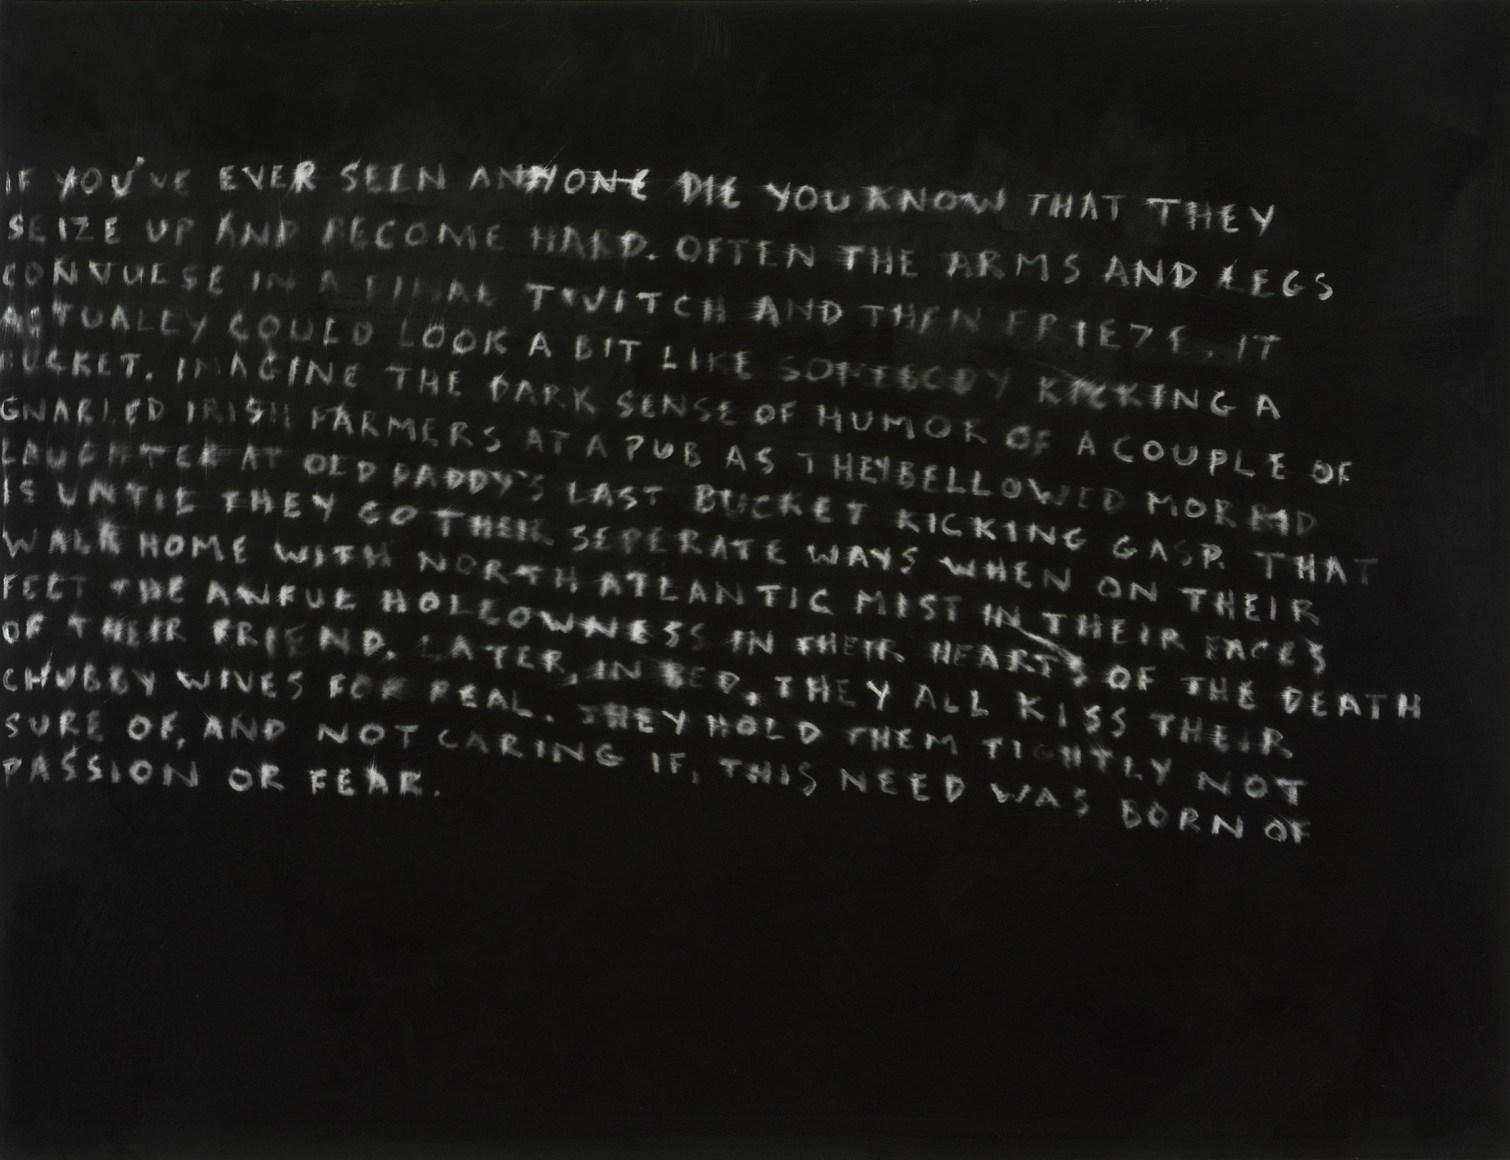 IF YOU'VE EVER SEEN ANYONE DIE YOU KNOW THAT THEY
SEIZE UP AND BECOME HARD. OFTEN THE ARMS AND LEGS
CONVULSE IN A FINAL TWITCH AND THEN FRIEZE. IT
ACTUALLY COULD LOOK A BIT LIKE SOMEBODY KICKING A
BUCKET. IMAGINE THE DARK SENSE OF HUMOR OF A COUPLE OF
GNARLED IRISH FARMERS AT A PUB AS THEY BELLOWED MORBID
LAUGHTER AT OLD DADDY'S LAST BUCKET KICKING GASP. THAT
IS UNTIL THEY GO THEIR SEPERATE WAYS WHEN ON THEIR
WALK HOME WITH NORTH ATLANTIC MIST IN THEIR FACES
FEEL THE AWFUL HOLLOWNESS IN THEIR HEARTS OF THE DEATH
OF THEIR FRIEND. LATER, IN BED, THEY ALL KISS THEIR
CHUBBY WIVES FOR REAL. THEY HOLD THEM TIGHTLY NOT
SURE OF, AND NOT CARING IF, THIS NEED WAS BORN OF
PASSION OR FEAR.